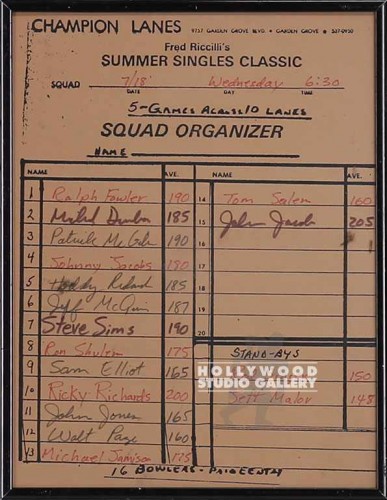 CHAMPION LANES 9757 GARDEN GROVE BLVD. • GARDEN GROVE • 537-0950
Fred Riccilli's
SUMMER SINGLES CLASSIC
SQUAD 7/18 Wednesday 6:30
DATE DAY TIME
5-GAMES ACROSS 10 LANES
SQUAD ORGANIZER
NAME
NAME AVE. NAME AVE.
1 Ralph Fowler 190
2 185
3 Patrick 190
4 Johnny Jacobs
5 185
6 Jeff McGuin 187
7 Steve Sims 190
8 Ron Shulem 175
9 Sam Elliot 165
10 Ricky Richards 200
11 John Jones 165
12 Walt Page 160
13 Michael Jamison 175
14 Tom Salem 160
15 John Jacob 205
16
17
18
19
20
STAND-BYS
HOLLYWOOD
STUDIO GALLERY
150
Jeff Malor 148
16 BOWLERS -